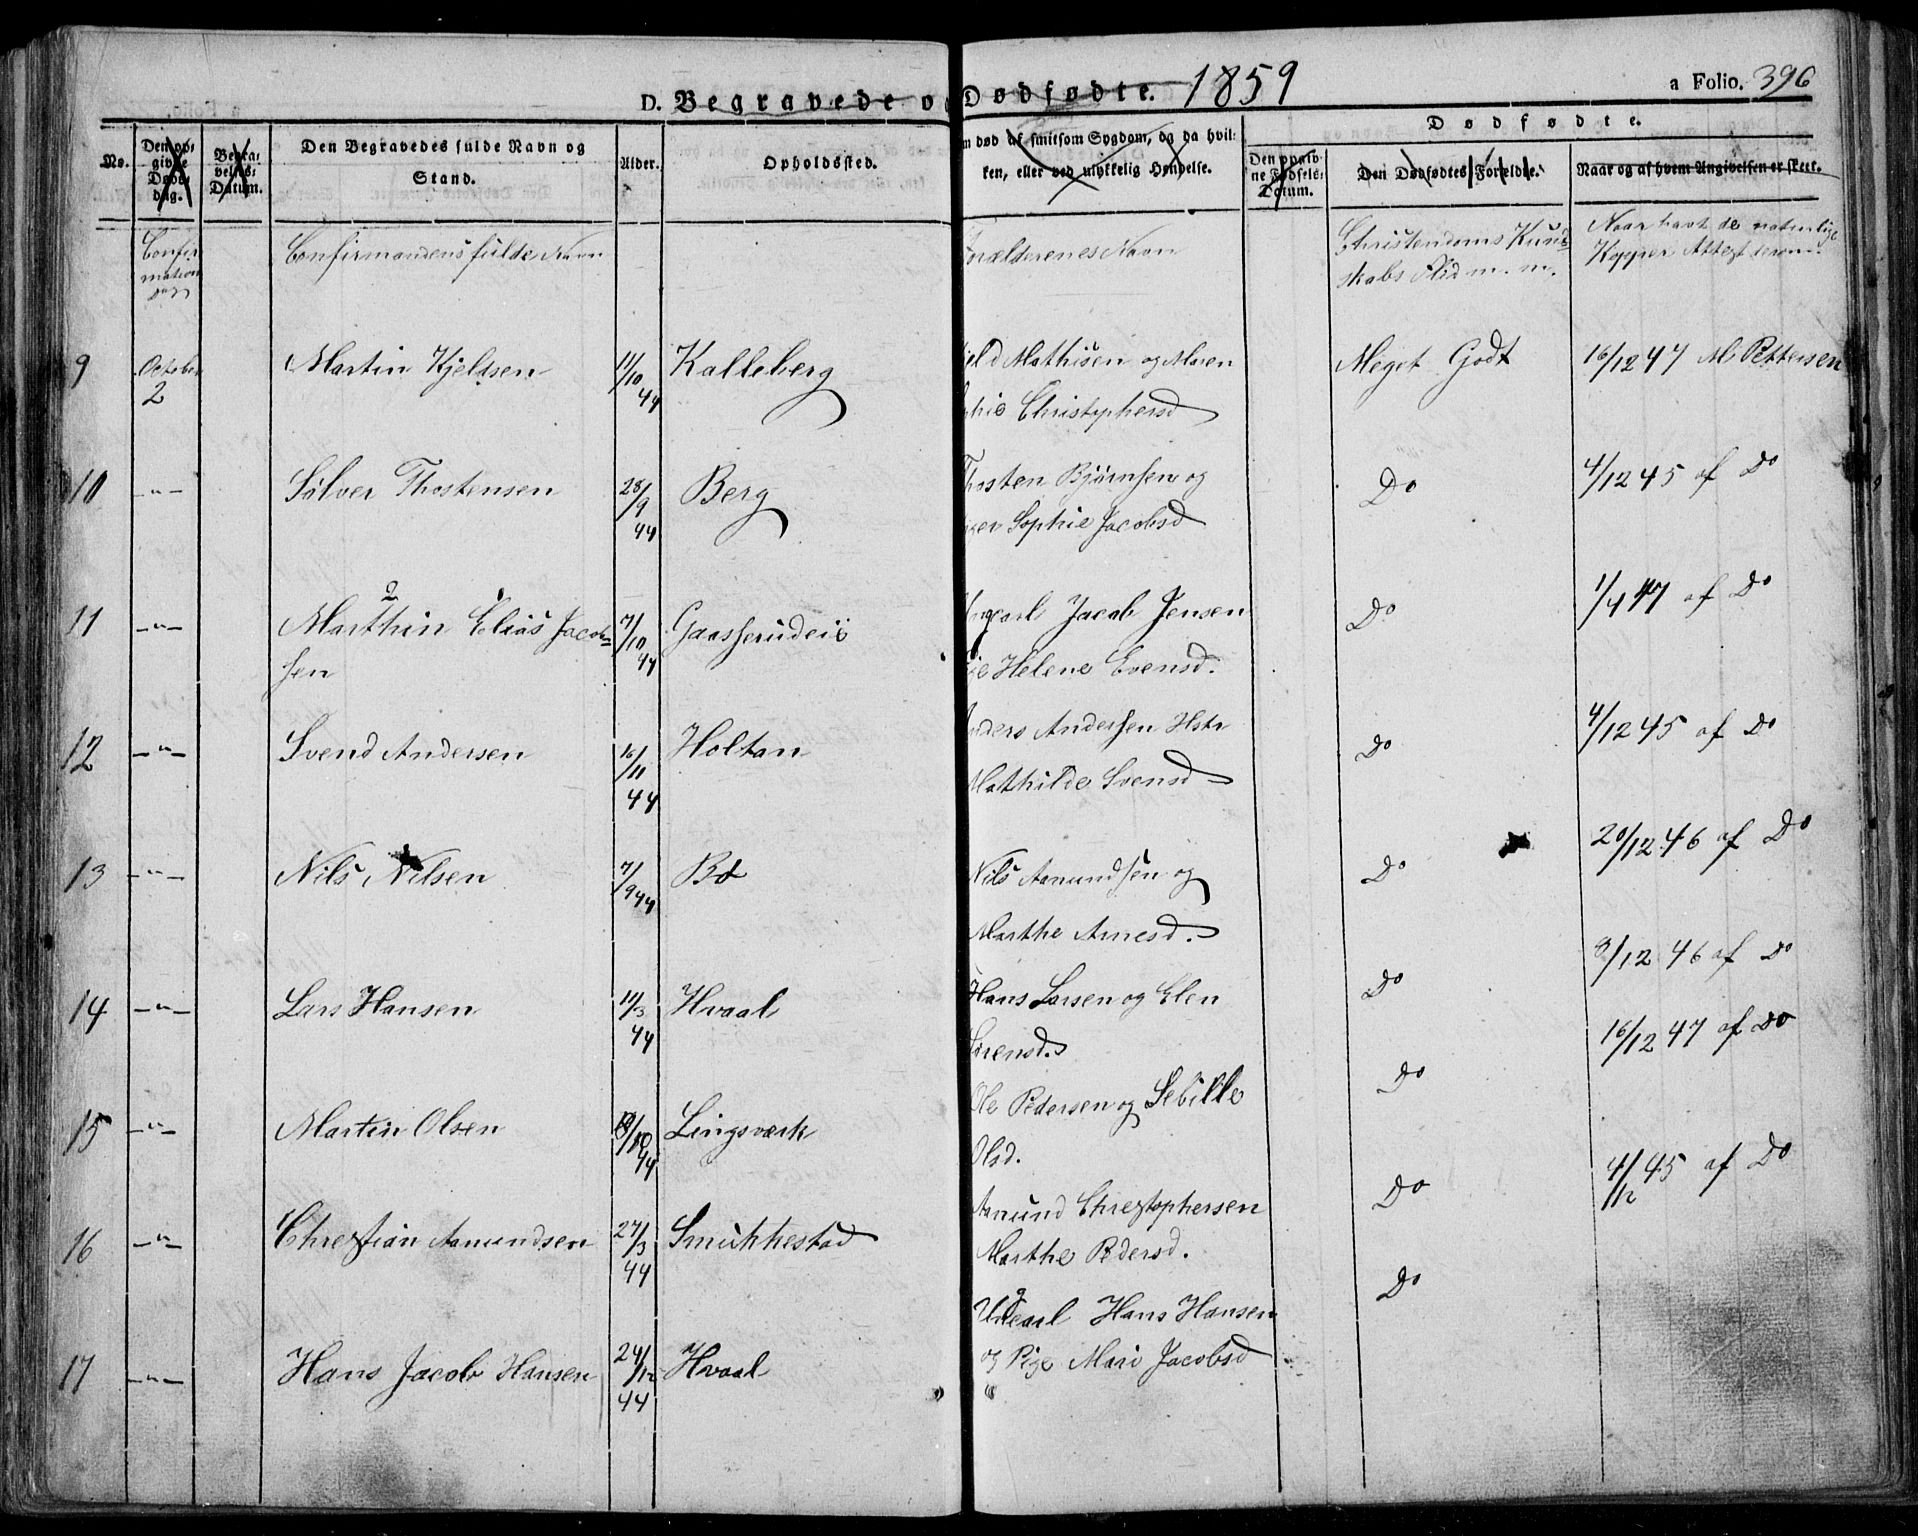 D. Begravede o Dødfødte. 1859 a Folio. 396
No.
Den op-
givne
Døds-
dag.
Begra-
velses-
Datum.
Den Begravedes fulde Navn og
Stand.
Alder.
Opholdssted.
m død af smitsom Sygdom, og da hvil-
ken, eller ved ulykkelig Hændelse.
Dødfødte.
Den opgiv-
ne Fødsels-
Datum.
Den Dødfødtes Forældre.
Naar og af hvem Angivelsen er skeet.
Confir
mations
dag
Confirmandens fulde Navn
Forælderenes Navn
Christendoms Kund-
skabs Flid m. m.
Naar havt de naturlige
Kopper Attest derom
9 October 2 Martin Kjeldsen 11/10 44 Kalleberg
jeld Mathisen og Maren
phie Christophersd
Meget Godt 16/12 47 M Pettersen
10 -"- Sølver Thostensen 28/9 44 Berg
Thosten Bjørnsen og
ger Sophie Jacobsd
Do 4/12 45 af Do
11 -"- Marthin Elias Jacob-
sen
7/10 44 Gaasserudeie
Ungcarl Jacob Jensen
ige Helene Evensd.
Do 1/4 47 af Do
12 -"- Svend Andersen 16/11 44 Holtan
nders Andersen Hstr
Mathilde Svensd
Do 4/12 45 af Do
13 -"- Nils Nilsen 7/9 44 Bø
Nils Aamundsen og
Marthe Arnesd.
Do 20/12 46 af Do
14 -"- Lars Hansen 11/3 44 Hvaal
Hans Larsen og Elen
Sørensd.
Do 8/12 46 af Do
15 -"- Martin Olsen 44 Lingsværk
Ole Pedersen og Sebille
Olsd.
Do 16/12 47 af Do
16 -"- Christian Aamundsen 27/3 44 Smukkestad
Aamund Christophersen
Marthe Pedersd.
Do 4/12 45 af Do
17 -"- Hans Jacob Hansen 24/12 44 Hvaal
Ungcarl Hans Hansen
og Pige Mari Jacobsd
Do